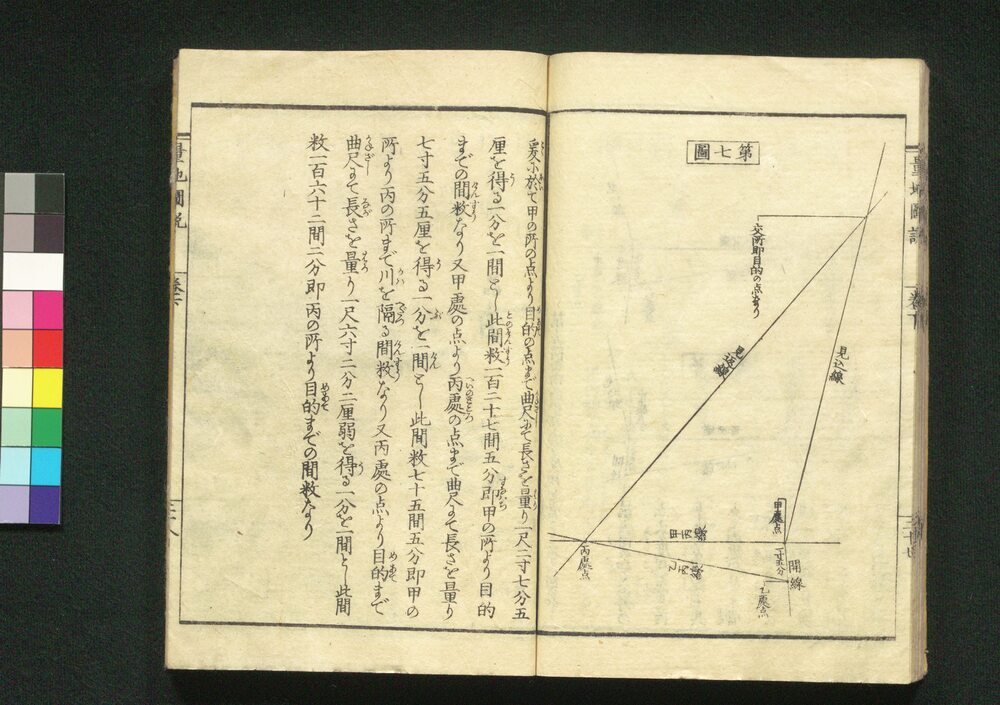 量地圖説
巻下
第七圖
交所即目的の点なり
見込線
見込線
甲處点
甲丙線
一寸五分
開線
乙丙線
乙處点
丙處点
爰に於て甲の所の点より目的の点まで曲尺にて長さを量り一尺二寸七分五
厘を得る一分を一間とし此間数一百二十七間五分即甲の所より目的
までの間数なり又甲處の点より丙處の点まで曲尺にて長さを量り
七寸五分五厘を得る一分を一間とし此間数七十五間五分即甲の
所より丙の所まで川を隔る間数なり又丙處の点より目的まで
曲尺にて長さを量り一尺六寸二分二厘弱を得る一分を一間とし此間
数一百六十二間二分即丙の所より目的までの間数なり
量地圖説
巻下